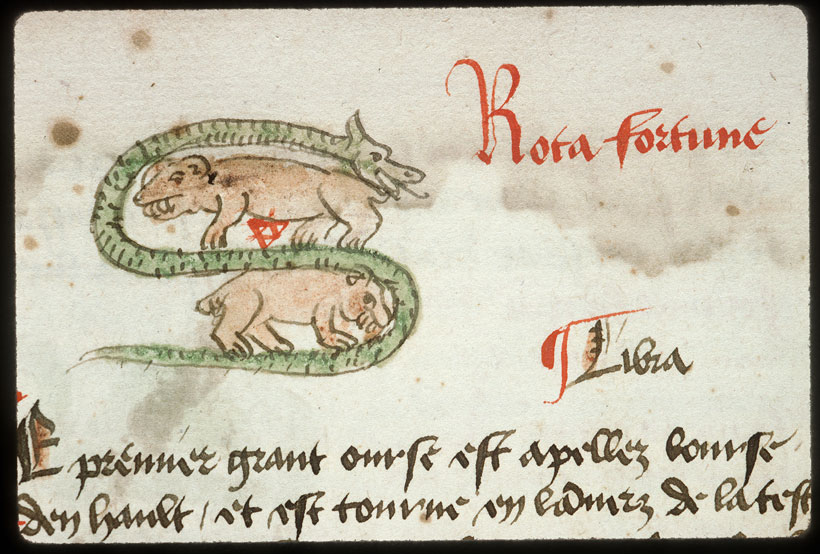 Rota fortune
¶ Libra
E premier grant ourse est apellez lourse
den hault / et est tourne en lenverz de la test